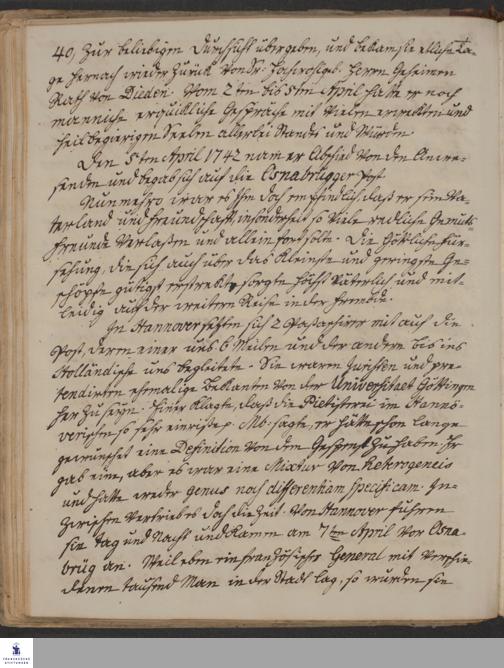 40, Zur beliebigen Durchsicht übergeben, und bekam sie etliche Ta-
ge hernach wieder zurück von Sr. Hochwohlgeb. Herrn Geheimen
Rath von Dieden. Vom 2ten bis 5ten April hatte er noch
manniche erquickliche Gespräche mit vielen erweckten und
heilsbegierigen Seelen allerlei Standes und Würden.
Den 5ten April 1742 nam er Abschied von den Anwe-
senden und begab sich auf die Osnabrügger Post.
Nunmehro war es Ihm doch empfindlich daß er sein Va-
terland und Freundschaft, insonderheit so viele redliche Gemüths-
freunde verlaßen und allein fort solte. Die Göttliche Für-
sehung, die sich auch über das kleinste und geringste Ge-
schöpfe gütigst erstrekt, sorgte höchst väterlich und mit-
leidig auf der weitern Reise in der Fremde.
In Hannover sezten sich 2 Passagirer mit auf die
Post, deren einer uns 6 Meilen und der andere bis ins
Holländische uns begleitete. Sie waren Juristen und pre-
tendirten ehmalige bekanten von der Universitaet Göttingen
her zu seyn. Einer klagte, daß die Pietisterei im Hannö-
verischen so sehr einriße p. Mb. sagte, er hätte schon lange
gewünschet eine Definition von dem Gespenst zu haben. Er
gab eine, aber es war eine Mixtur von Heterogeneis
und hatte weder genus noch differentiam specificam. In-
zwischen vertrieb es doch die Zeit. Von Hannover fuhren
sie Tag und Nacht und kamen am 7ten April vor Osna-
brüg an. Weil eben ein französischer General mit verschie-
denen tausend Man in der Stadt lag, so wurden sie
FRANCKESCHE
STIFTUNGEN